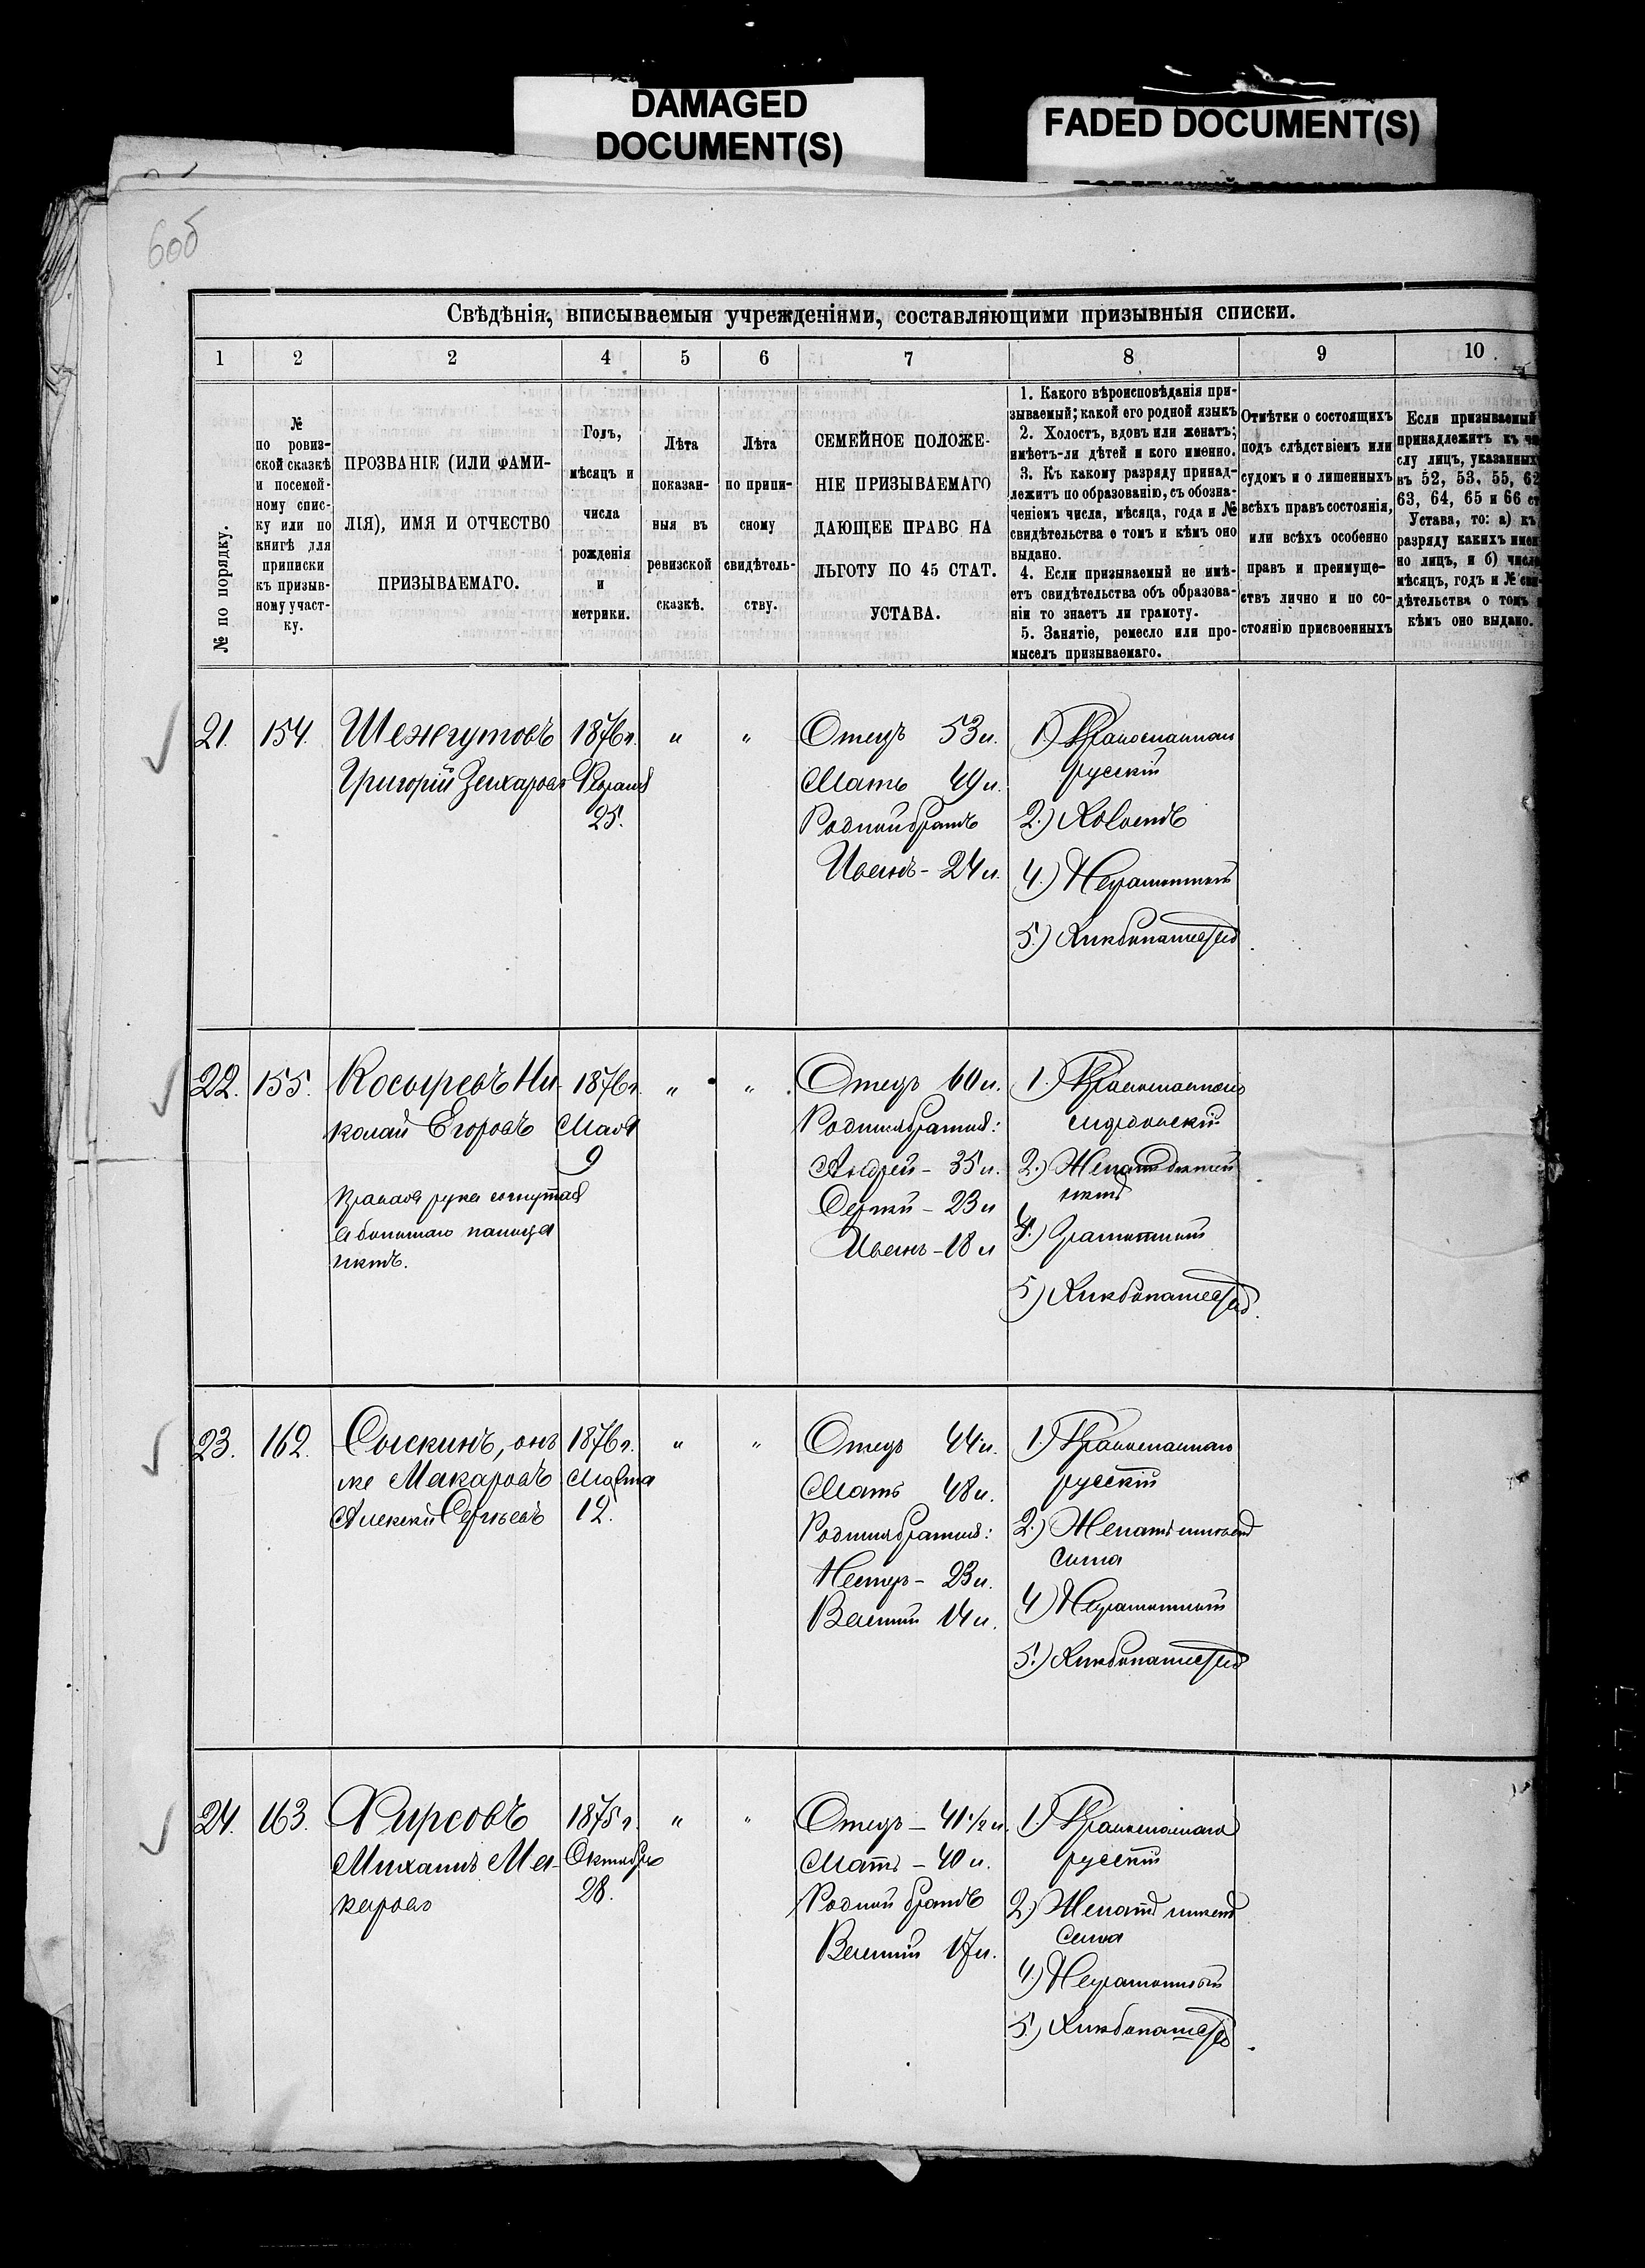 DAMAGED
DOCUMENT(S)
FADED DOCUMENT(S)
60б
Свѣдѣнія, вписываемыя учрежденіями, составляющими призывныя списки.
1 2 2 4 5 6 7 8 9 10
№ по порядку.
№
по ровиз-
ской сказкѣ
и посемей-
ному спис-
ку или по
книгѣ для
приписки
къ призыв-
ному участ-
ку.
ПРОЗВАНІЕ (ИЛИ ФАМИ-
ЛІЯ), ИМЯ И ОТЧЕСТВО
ПРИЗЫВАЕМАГО.
Годъ,
мѣсяцъ и
числа
рожденія
и
метрики.
Лѣта
показан-
ныя въ
ревизской
сказкѣ.
Лѣта
по припи-
сному
свидѣтель-
ству.
СЕМЕЙНОЕ ПОЛОЖЕ-
НІЕ ПРИЗЫВАЕМАГО
ДАЮЩЕЕ ПРАВО НА
ЛЬГОТУ ПО 45 СТАТ.
УСТАВА.
1. Какого вѣроисповѣданія при-
зываемый; какой его родной языкъ
2. Холостъ, вдовъ или женатъ;
имѣетъ-ли дѣтей и кого именно.
3. Къ какому разряду принад-
лежитъ по образованію, съ обозна-
ченіемъ числа, мѣсяца, года и №
свидѣтельства о томъ и кѣмъ оно
выдано.
4. Если призываемый не имѣ-
етъ свидѣтельства объ образова-
ніи то знаетъ ли грамоту.
5. Занятіе, ремесло или про-
мыселъ призываемаго.
Отмѣтки о состоящихъ
подъ слѣдствіемъ или
судомъ и о лишенныхъ
всѣхъ правъ состоянія,
или всѣхъ особенно
правъ и преимуще-
ствъ лично и по со-
стоянію присвоенныхъ
Если призываемый
принадлежитъ къ чи
слу лицъ, указанных
въ 52, 53, 55, 62
63, 64, 65 и 66 ст
Устава, то: а) къ
разряду какихъ имен
но лицъ, и б) число
мѣсяцъ, годъ и № сви
дѣтельства о томъ
кѣмъ оно выдано.
21. 154.
Григорій Захаровъ
1876 г.
25.
" "
Отецъ 53 л.
Мать 49 л.
Родной братъ
Иванъ - 24 л.
1.) Православнаго
русскій
2.) Холостъ
4.) Неграмотный
5.) Хлѣбопашецъ
22. 155.
Косыревъ Ни-
колай Егоровъ
Правая рука согнутая
а большаго пальца
нѣтъ.
1876 г.
Мая
9
" "
Отецъ 60 л.
Родные братья:
Андрей - 35 л.
Сергѣй - 23 л
Иванъ - 18 л
1.) Православнаго
мордовскій
2.) Женатъ дѣтей
нѣтъ
4.) Грамотный
5) Хлѣбопашецъ.
23. 162.
Сыскинъ, онъ
же Макаровъ
Алексѣй Сергѣевъ
1876 г.
Марта
12.
" "
Отецъ 44 л.
Мать 48 л.
Родные братья:
Несторъ - 23 л.
Василій 14 л.
1.) Православнаго
русскій
2.) Женатъ имѣетъ
сына
4) Неграмотный
5.) Хлѣбопашецъ
24. 163.
Фирсовъ
Михаилъ Ма-
каровъ
1875 г.
Октября
28.
" "
Отецъ - 41 1/2 л.
Мать - 40 л.
Родной братъ
Василій 17 л.
1) Православнаго
русскій
2.) Женатъ имѣетъ
сына
4.) Неграмотный
5.) Хлѣбопашецъ.